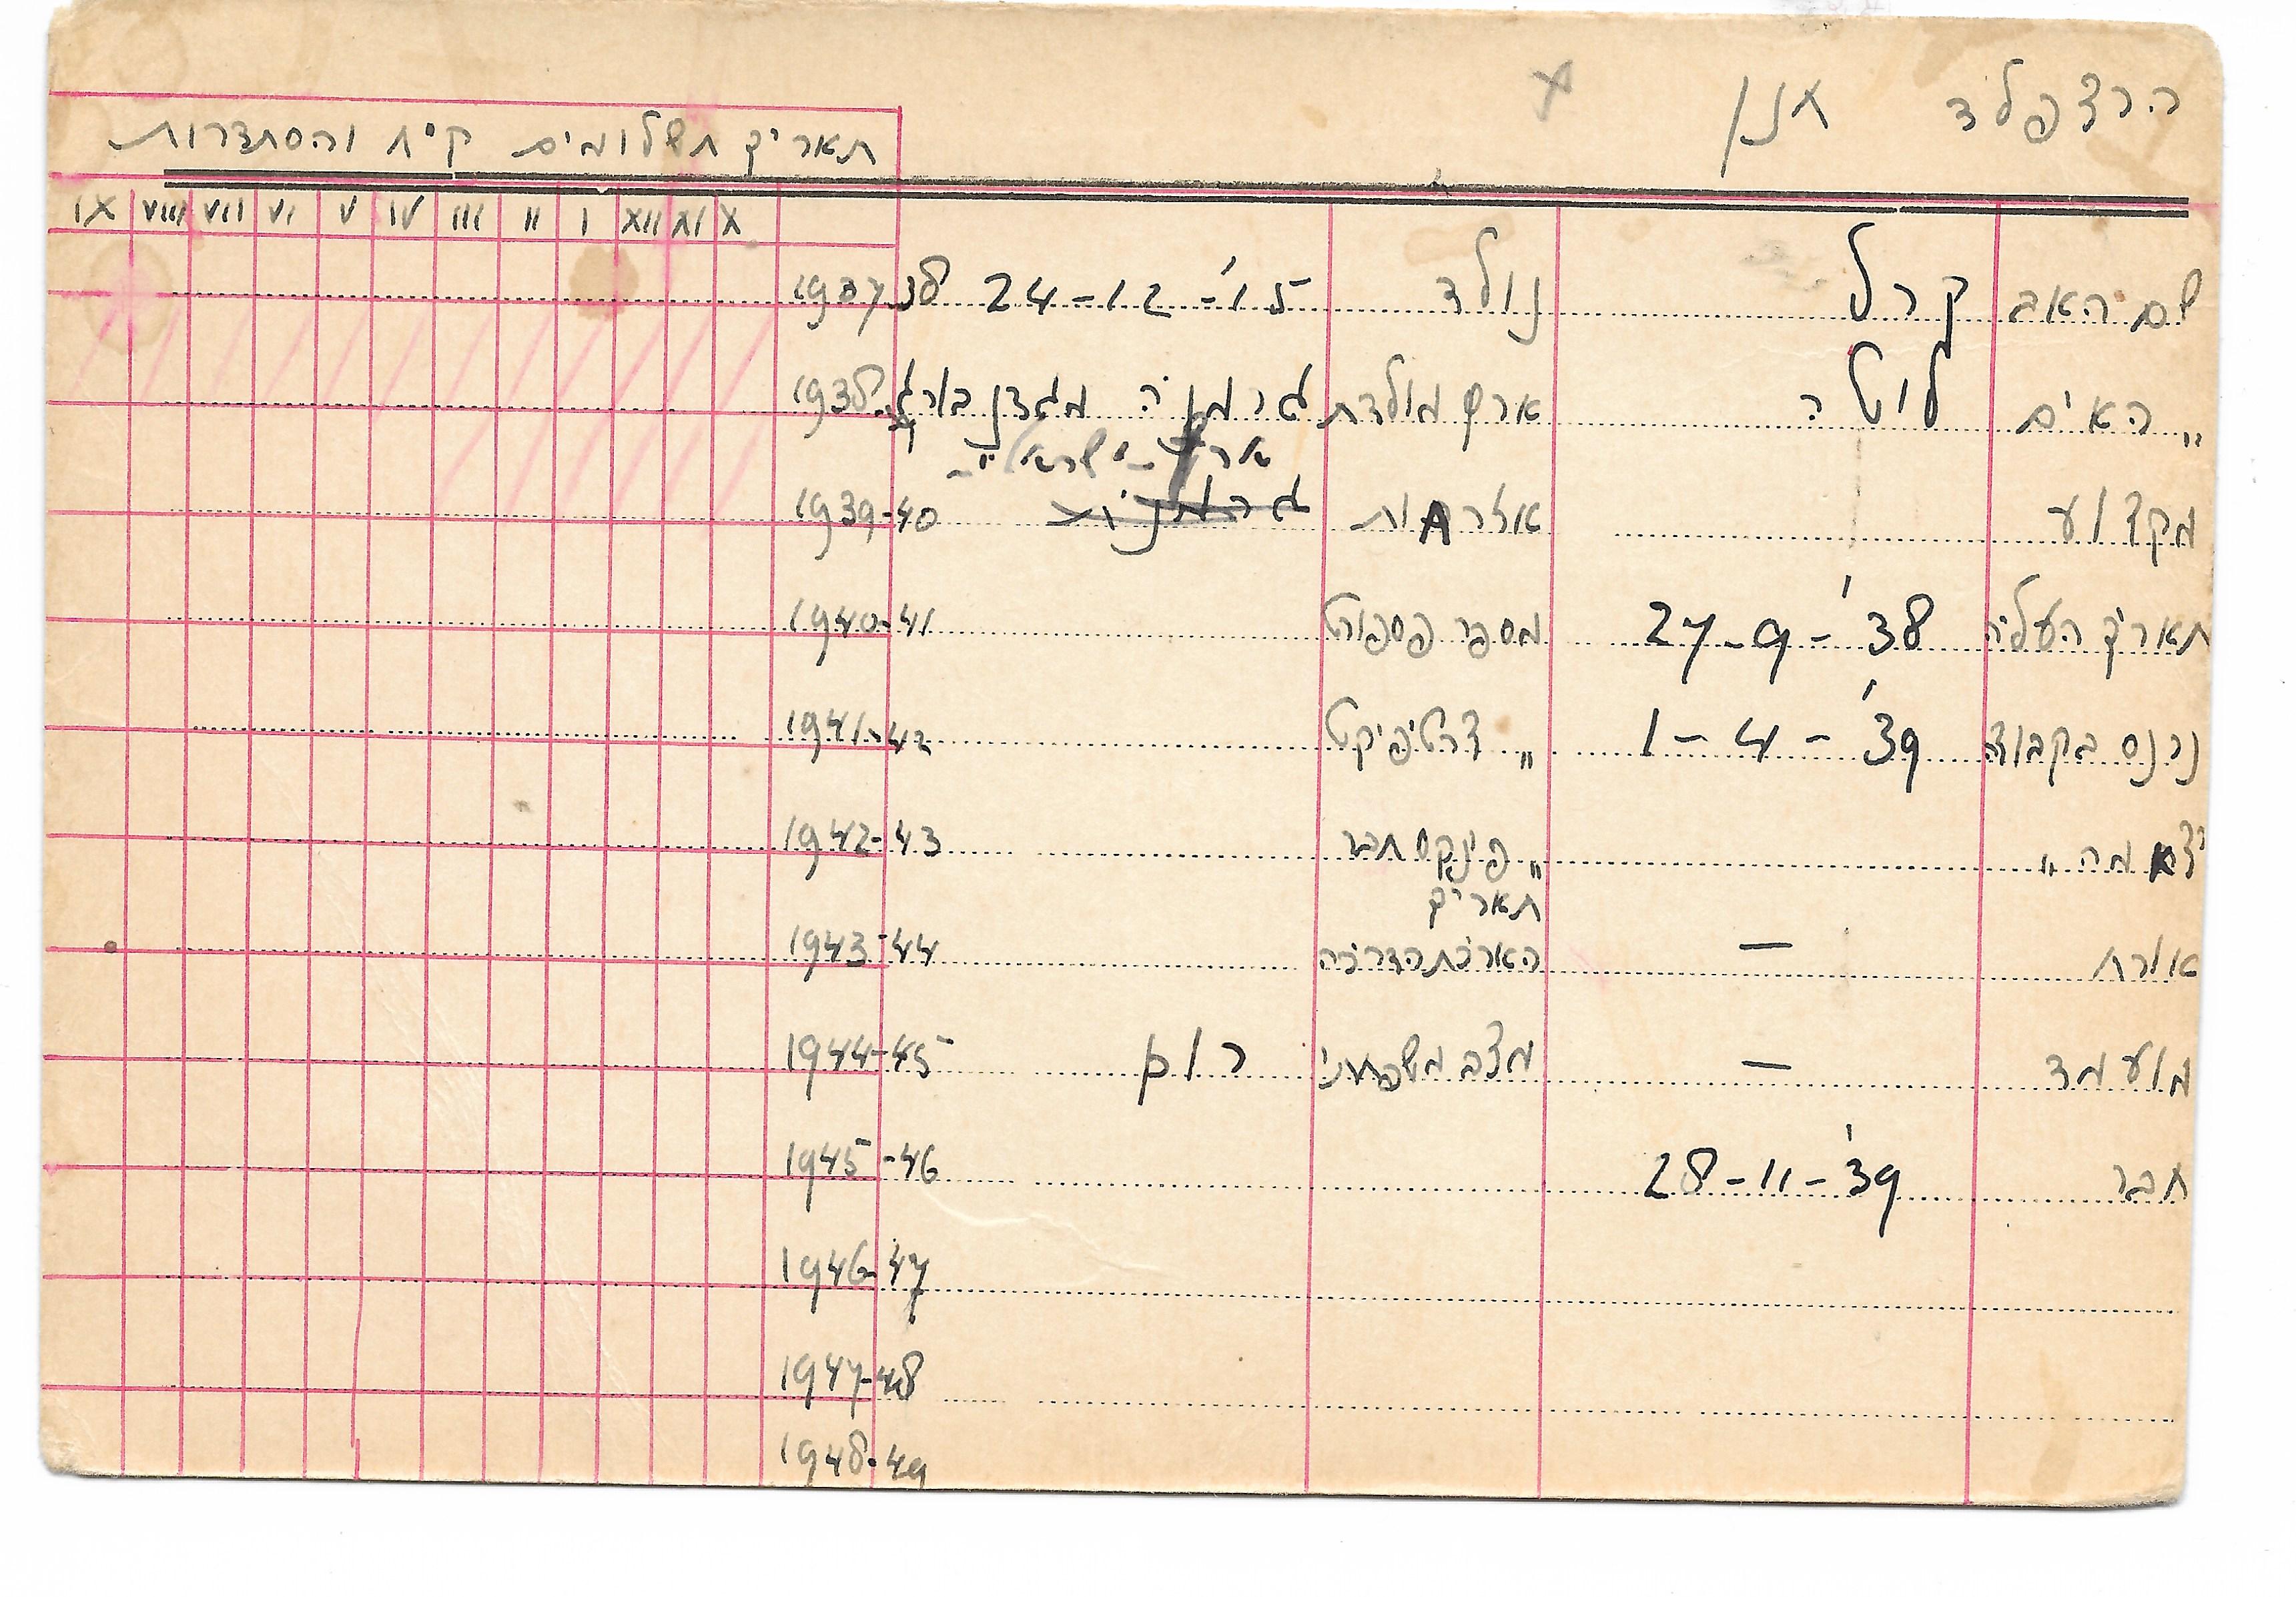 הרצפלד
תאריך תשלומים ק״ח והסתדרות
X XI XII I II III IV V VI VII VIII IX
שם האב קרל נולד 24-12-'15 1937-38
״ האים ארץ מולדת גרמניה מגדנבורג 1938-39
ארץ-ישראלי
מקצוע 1939-40
תאריך העליה 27-9-'38 מספר פספורט 1940-41
נכנס בקבוצה 1-4-'39 ״ צרטיפיקט 1941-42
יצא מה ״ ״ פינקס חבר 1942-43
תאריך
אורח — הארכת הדרכיה 1943-44
מועמד — מצב משפחתי רוק 1944-45
חבר 28-11-'39 1945-46
1946-47
1947-48
1948-49